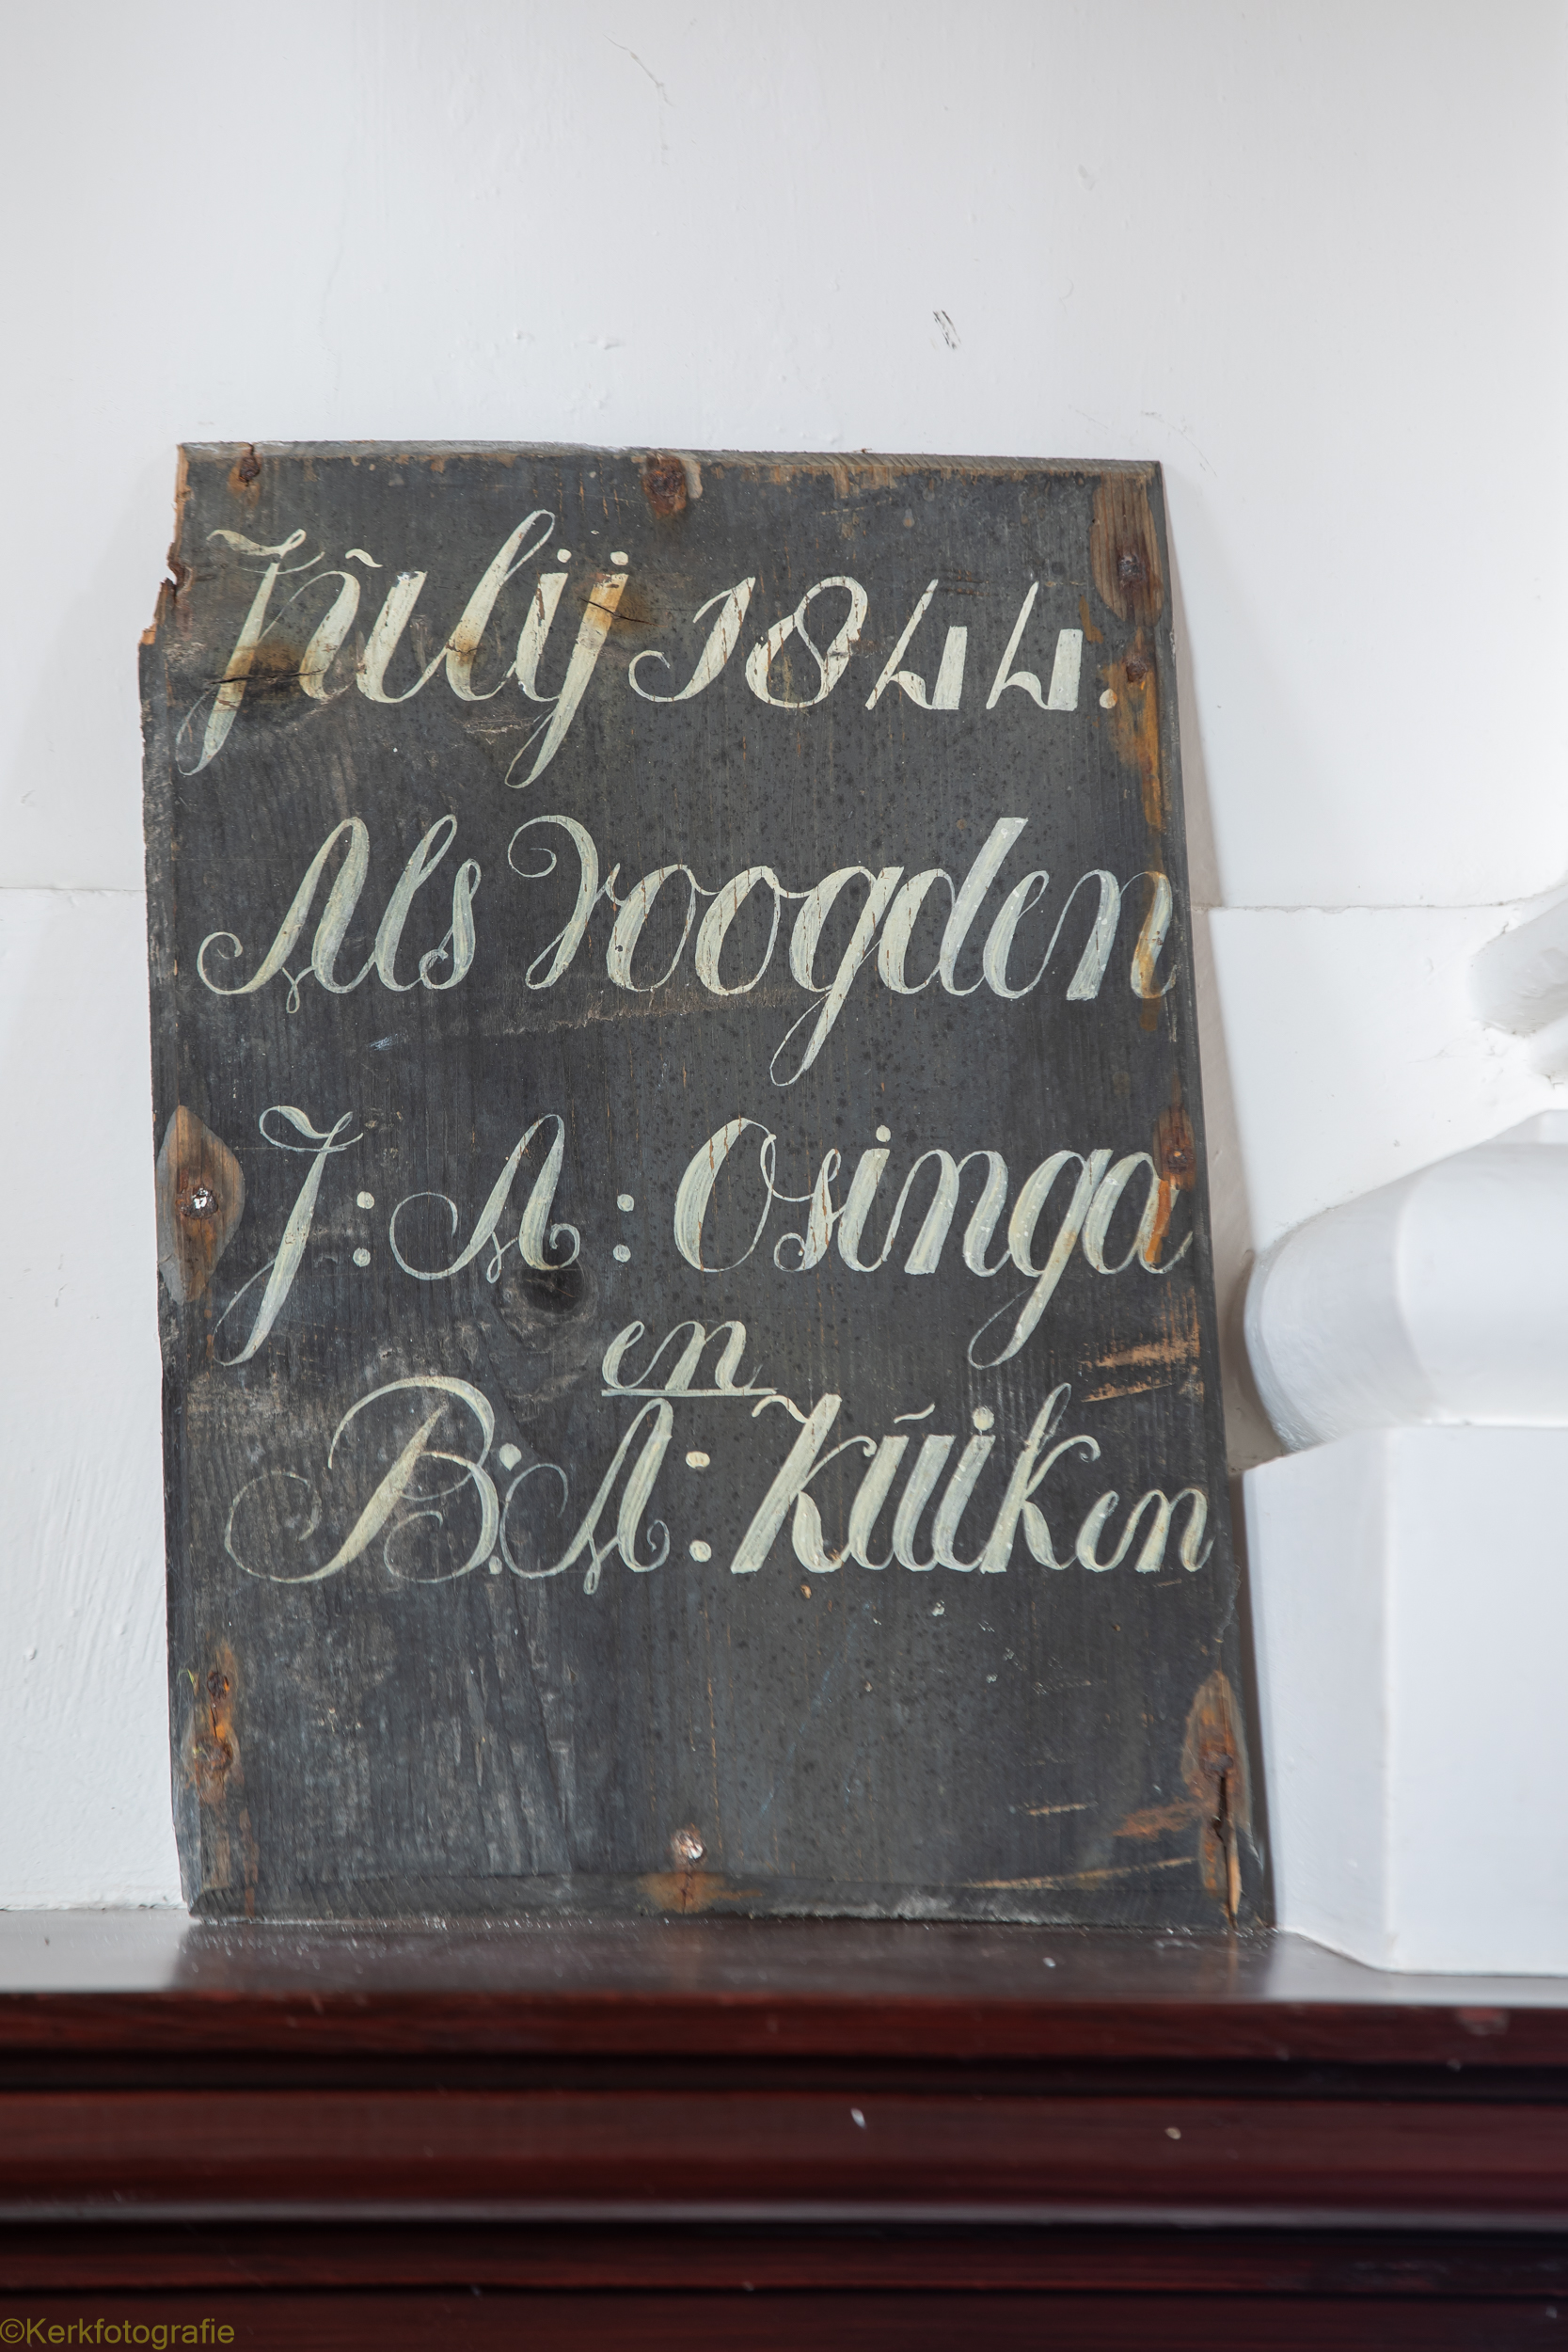 Jŭlij 1844.
Als Voogden
J: A: Osinga
en
B: A: Kŭiken
©Kerkfotografie